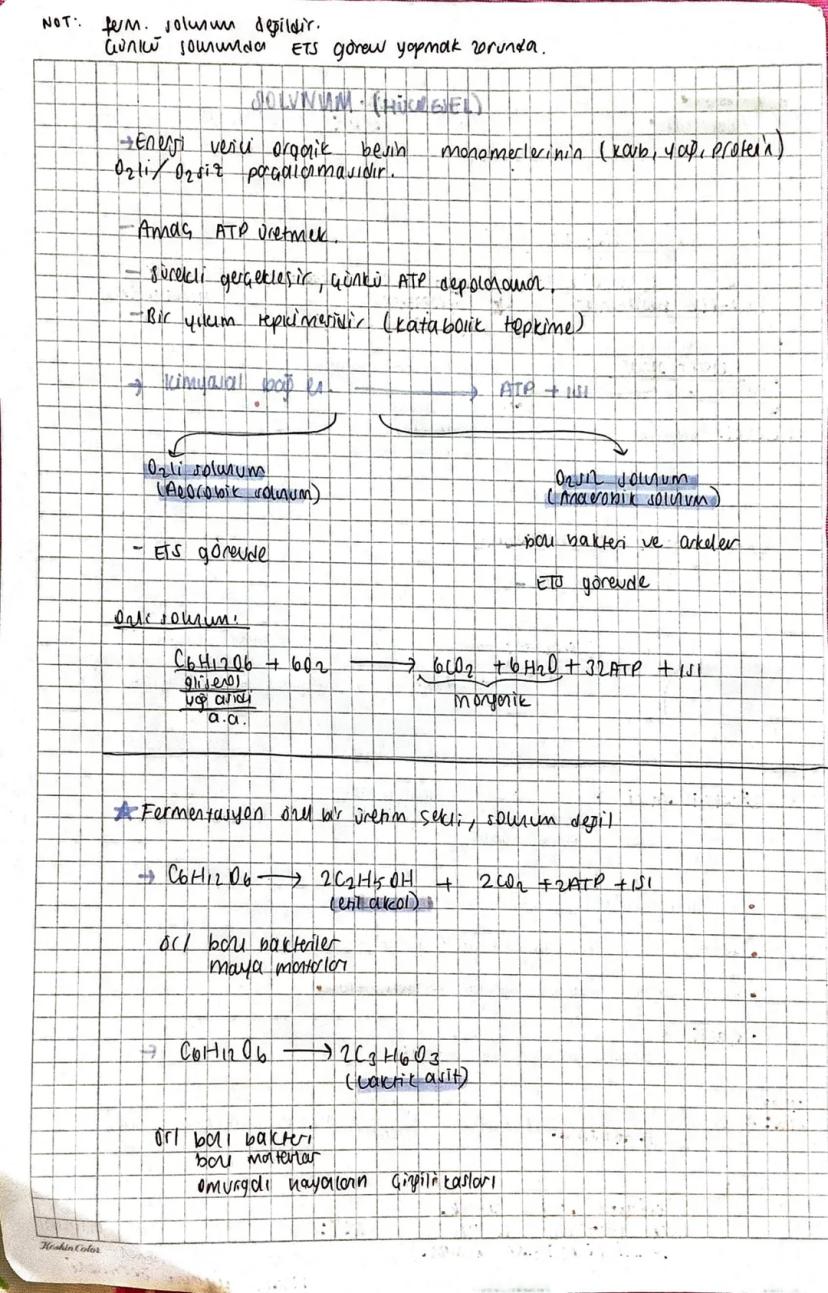 NOT: ferm. solunum değildir.
Çünkü solunumda ETS görev yapmak zorunda.
SOLUNUM (HÜCRESEL)
→Enerji verici organik besin monomerlerinin (karb, yağ, protein)
O2li/O2siz parçalanmasıdır.
- Amaç ATP üretmek.
- Sürekli gerçekleşir, çünkü ATP depolanamaz.
- Bir yıkım tepkimesidir. (katabolik tepkime)
→ kimyasal bağ en. → ATP + ısı
O2li solunum
(Aerobik solunum)
O2siz solunum
(Anaerobik solunum)
- bazı bakteri ve arkeler
- ETS görevde
- ETS görevde
O2li solunum:
C6H12O6 + 6O2 → 6CO2 + 6H2O + 32ATP + ısı
gliserol
yağ asidi
a.a.
inorganik
★ Fermentasyon özel bir üretim şekli, solunum değil
→ C6H12O6 → 2C2H5OH + 2CO2 + 2ATP + ısı
(etil alkol)
ör/ bazı bakteriler
maya mantarları
→ C6H12O6 → 2C3H6O3
(Laktik asit)
ör/ bazı bakteri
bazı mantarlar
omurgalı hayvanların çizgili kasları
KeskinColor